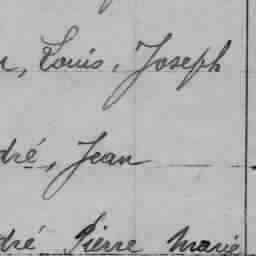 , Louis, Joseph
dré, Jean
dré Pierre Marie